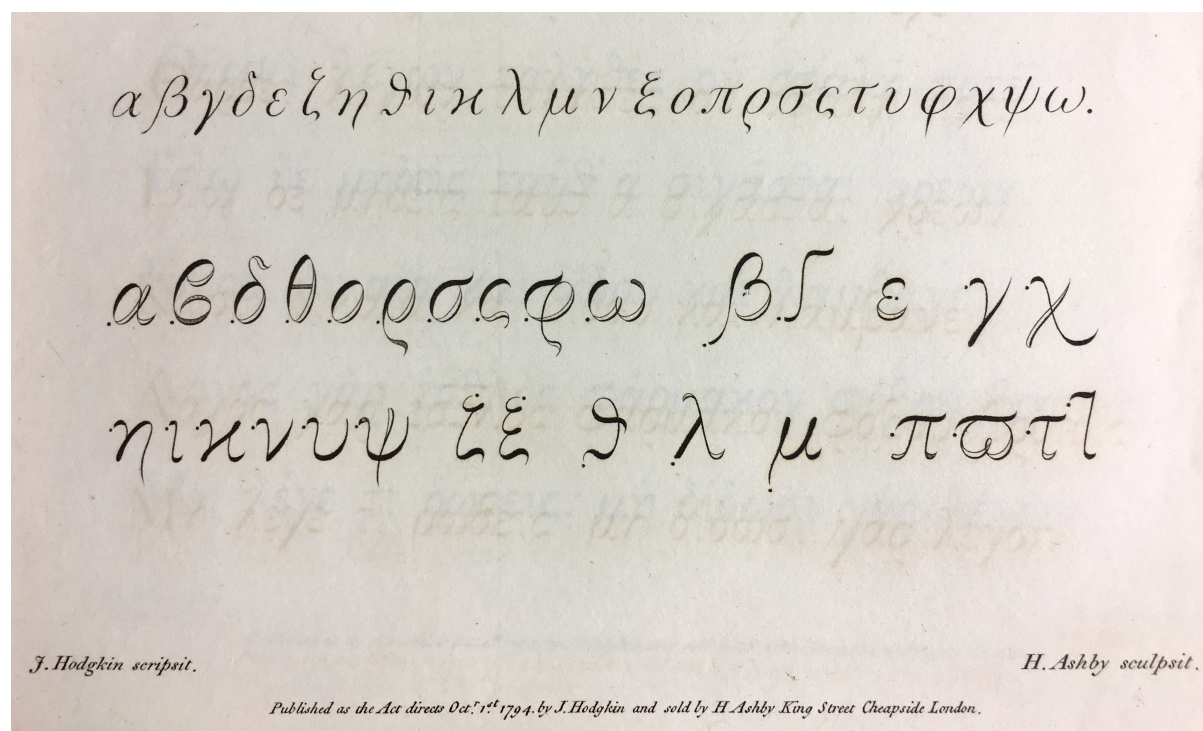 αβγδεζηϑικλμνξοπρσςτυφχψω.
αϐδθορσςφω βʃ ε γχ
ηικνυψ ζξ ϑ λ μ πϖτ˥
J. Hodgkin scripsit.
H. Ashby sculpsit.
Published as the Act directs Oct.r 1.st 1794. by J. Hodgkin and sold by H Ashby King Street Cheapside London.